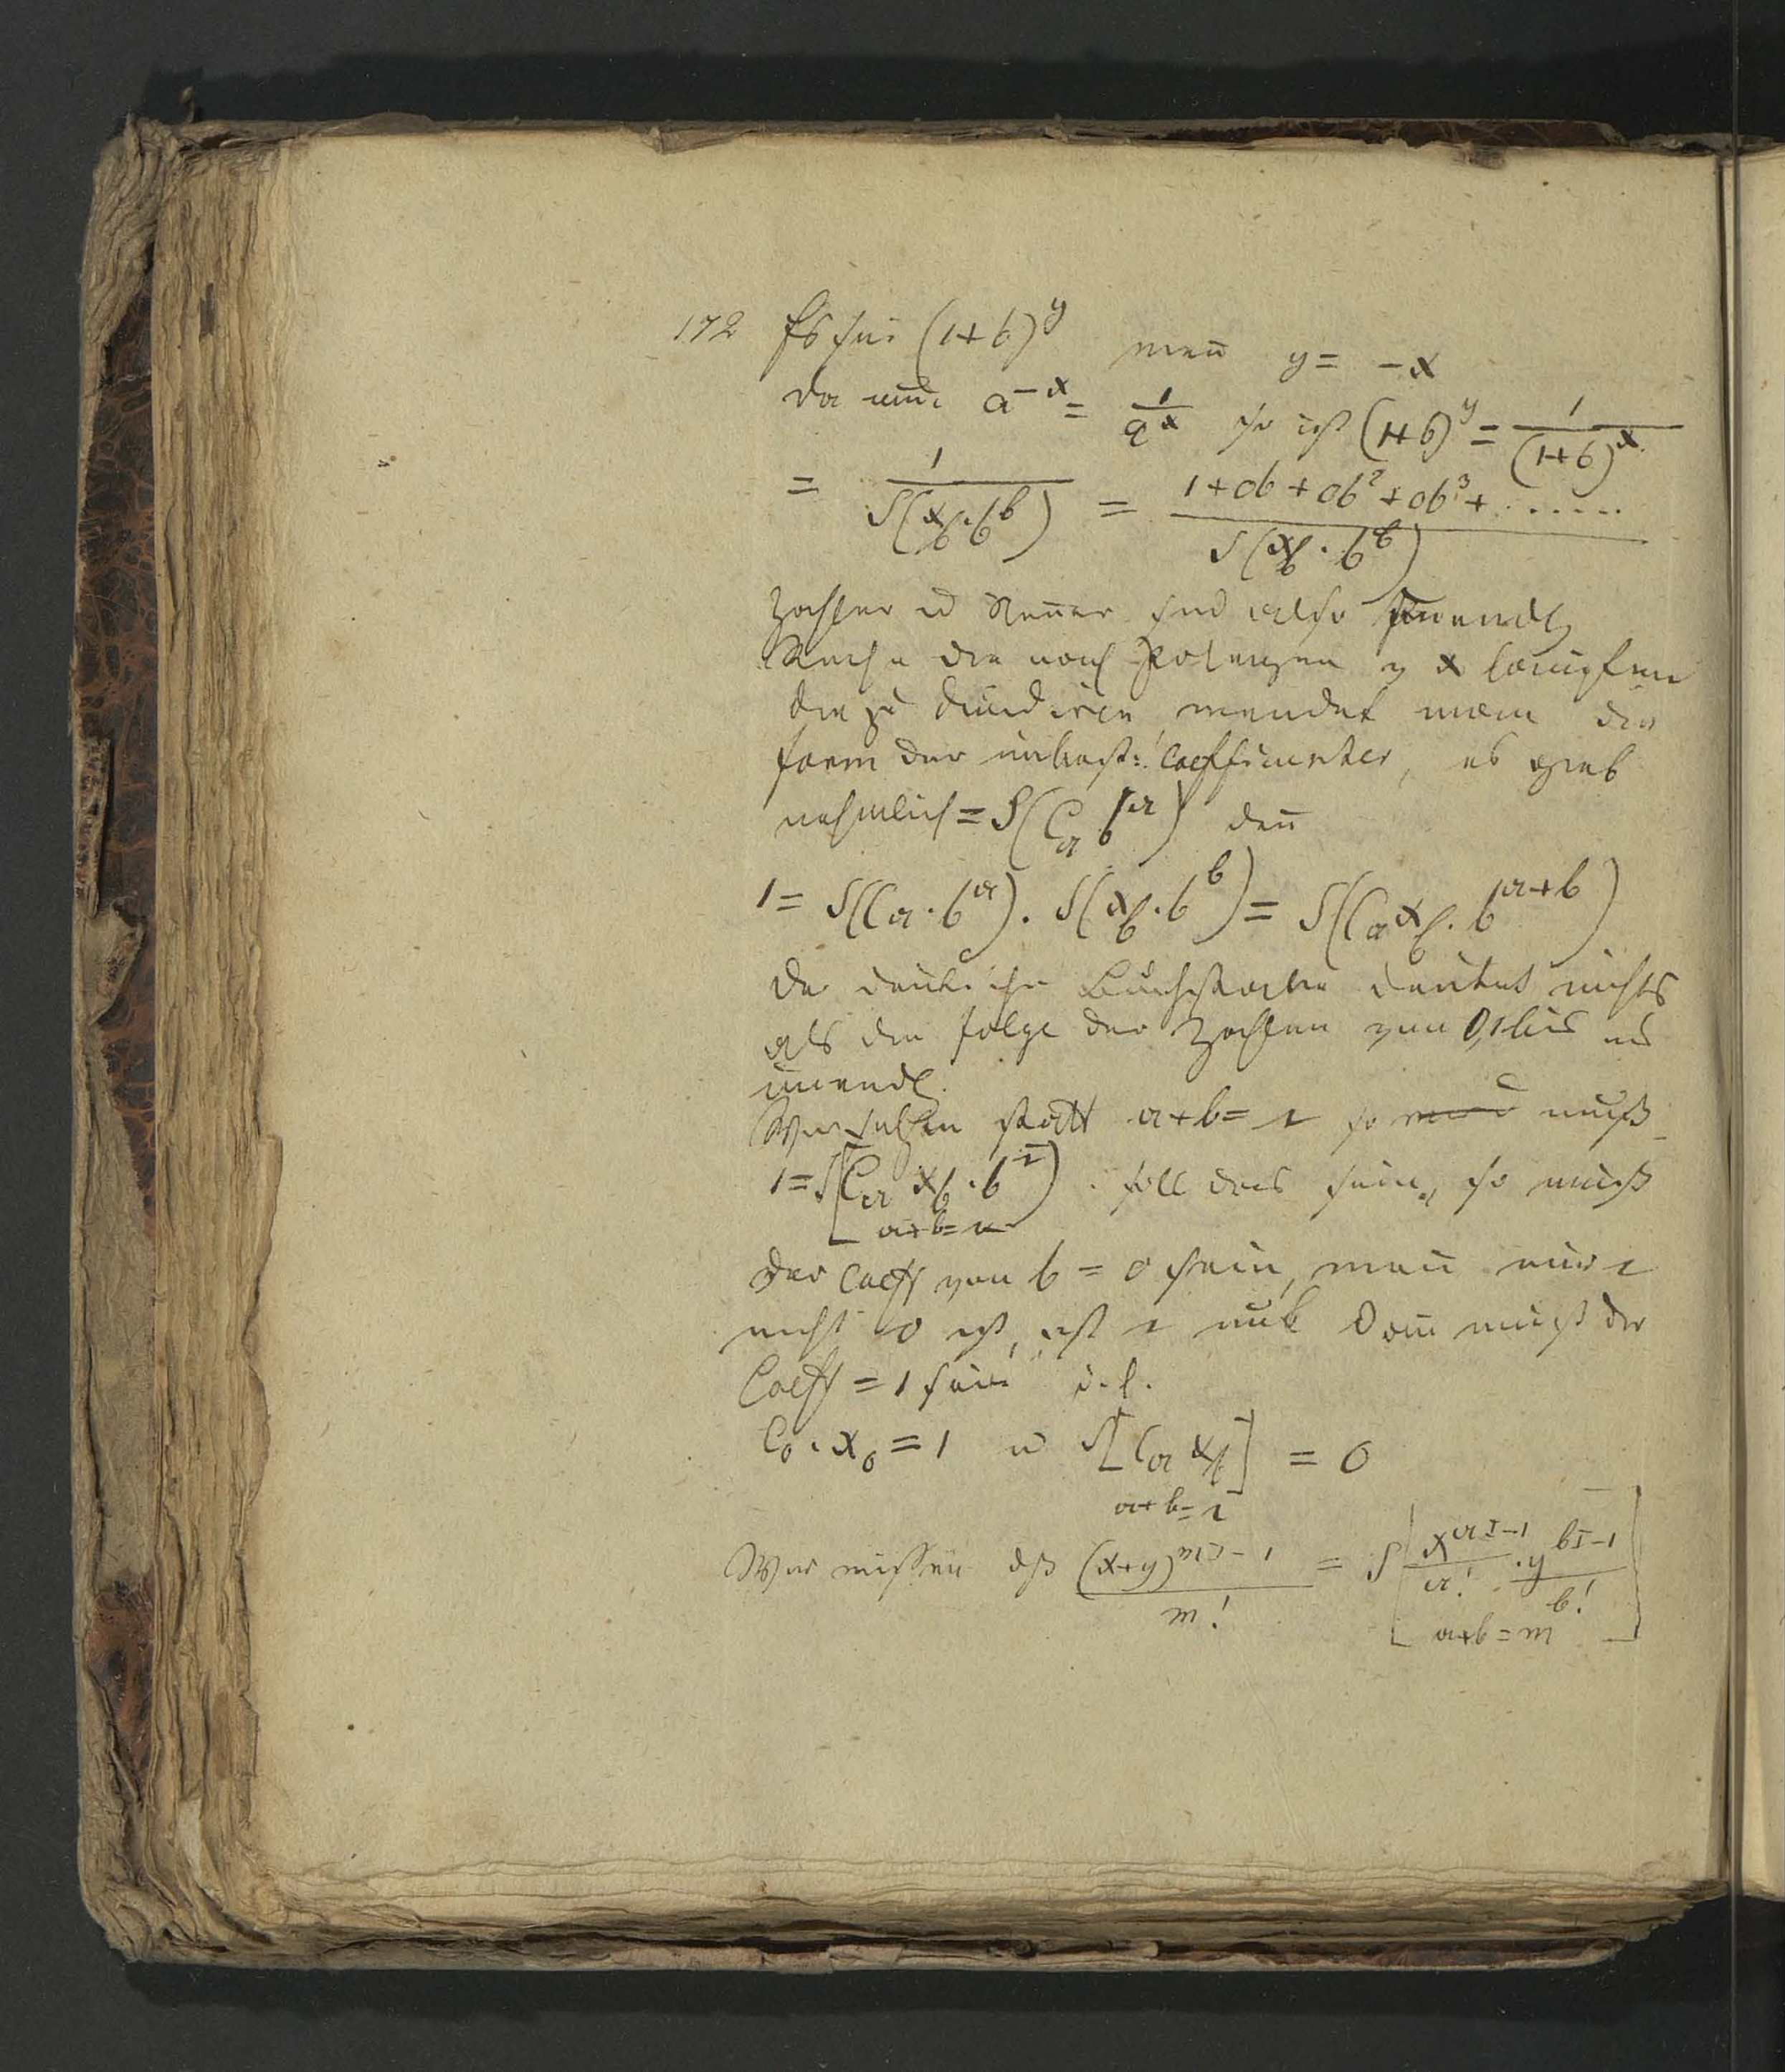 172 Es sei (1+b)^y wen̄ y = -x
da nun a^{-x} = 1/a^x so ist (1+b)^y = 1/(1+b)^x
= 1/S(x_b·b^b) = (1+0b+0b²+0b³+.....)/S(x_b·b^b)
Zahler u Nen̄er sind also unendl
Reihe die nach Potenzen v x laufen
die zu dividiren wendet man die
form der unbest: Coefficienten, es sei
nehmlich = S(C_a b^a) den̄
1 = S(C_a·b^a). S(x_b·b^b) = S(C_a x_b. b^{a+b})
der deutsche Buchstabe deutet nichts
als die folge der Zahlen von 0,1 bis ins
unendl.
Wir setzen statt a+b = r so muß
1 = S[C_a x_b·b^r) soll das sein, so muß
a+b=r
der Coeff von b = 0 sein, wen̄ nur r
nicht 0 ist, ist r null dan̄ muß der
Coeff = 1 sein d.h.
C_0·x_0 = 1 u S[C_a x_b] = 0
a+b=r
Wir wissen dß (x+y)^{m|-1}/m! = S[x^{a|-1}/a! · y^{b|-1}/b!]
a+b=m